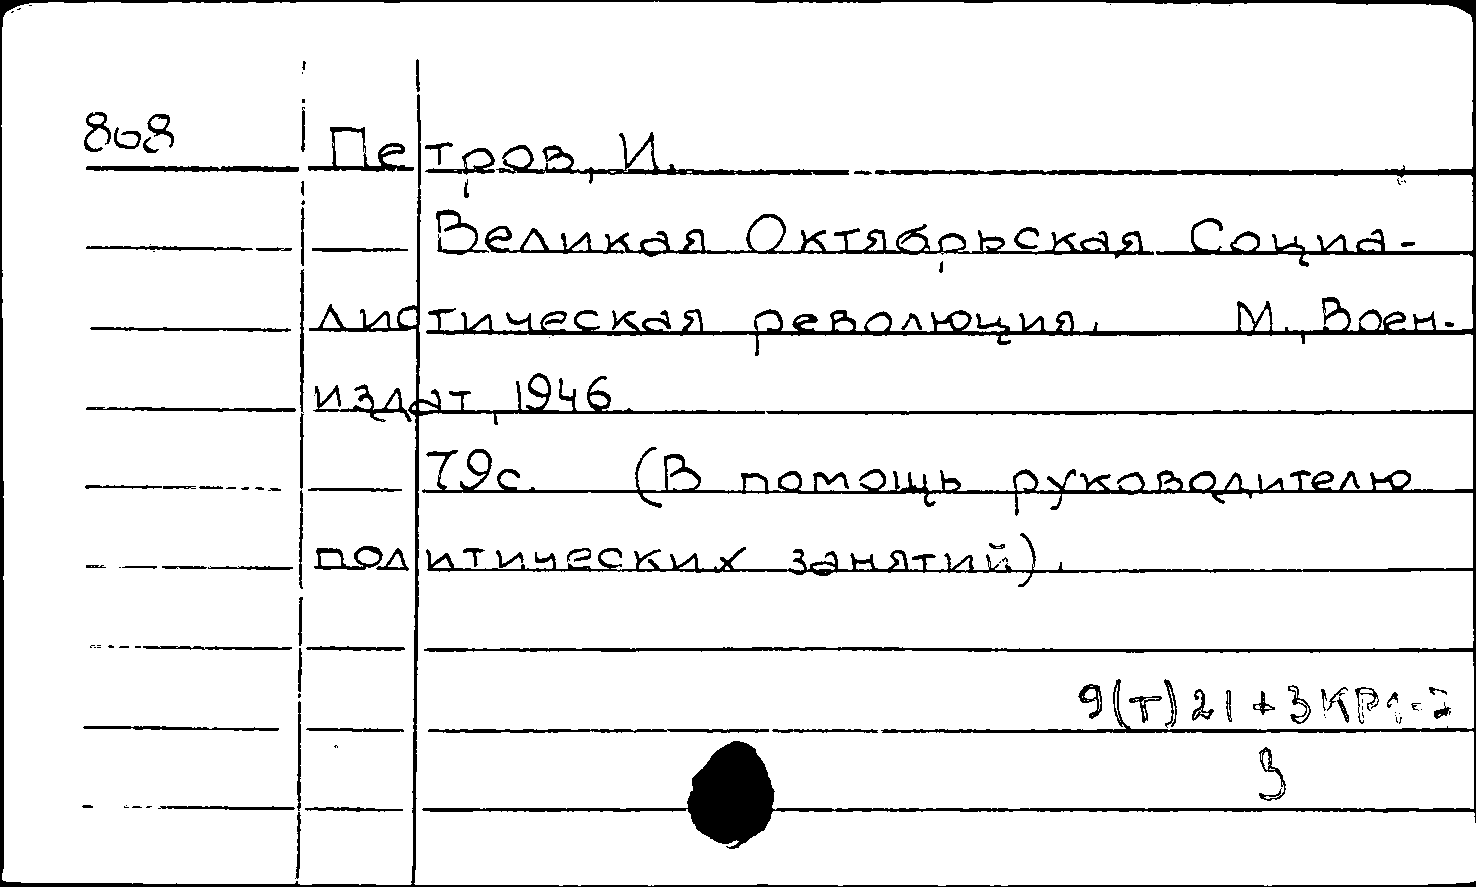 808 Петров, И.
Великая Октябрьская Социа-
листическая революция. М., Воен-
издат, 1946.
79с. (В помощь руководителю
политических занятий).
9(т)21+3КР1-
3